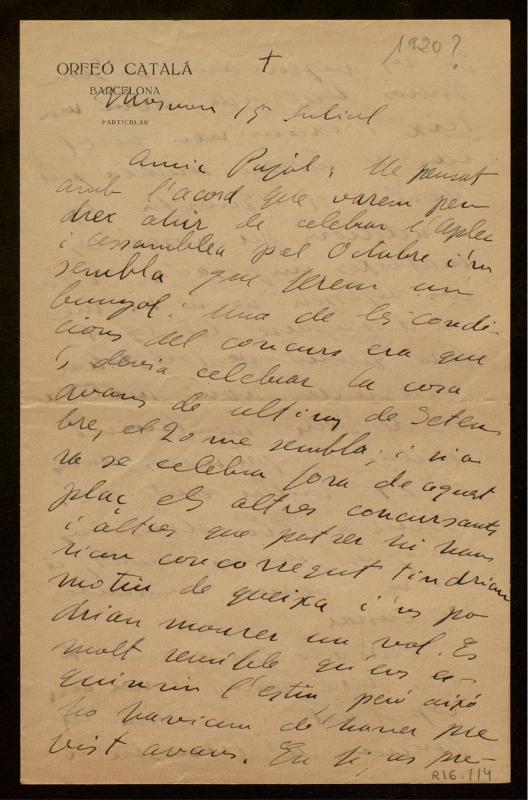 1920?
+
ORFEÓ CATALÁ
BARCELONA
PARTICULAR
15 Juliol
Amic Pujol: He pensat
amb l'acord que varem pen
drer ahir de celebrar l'Aplec
i assamblea pel Octubre i'm
sembla que ferem un
bunyol. Una de les condi
cions del concurs era que
s'devia celebrar la cosa
avans de ultims de Setem
bre, el 20 me sembla, i si a
ra se celebra fora de aquest
plaç els altres concursants
i altres que potser hi hau
rian concorregut tindrian
motiu de queixa i'ns po
drian mourer un vol. Es
molt sensible qu'ens es-
guerrin l'estiu, però això
ho haviem de haver pre
vist avans. En fi, as pre-
R16.114